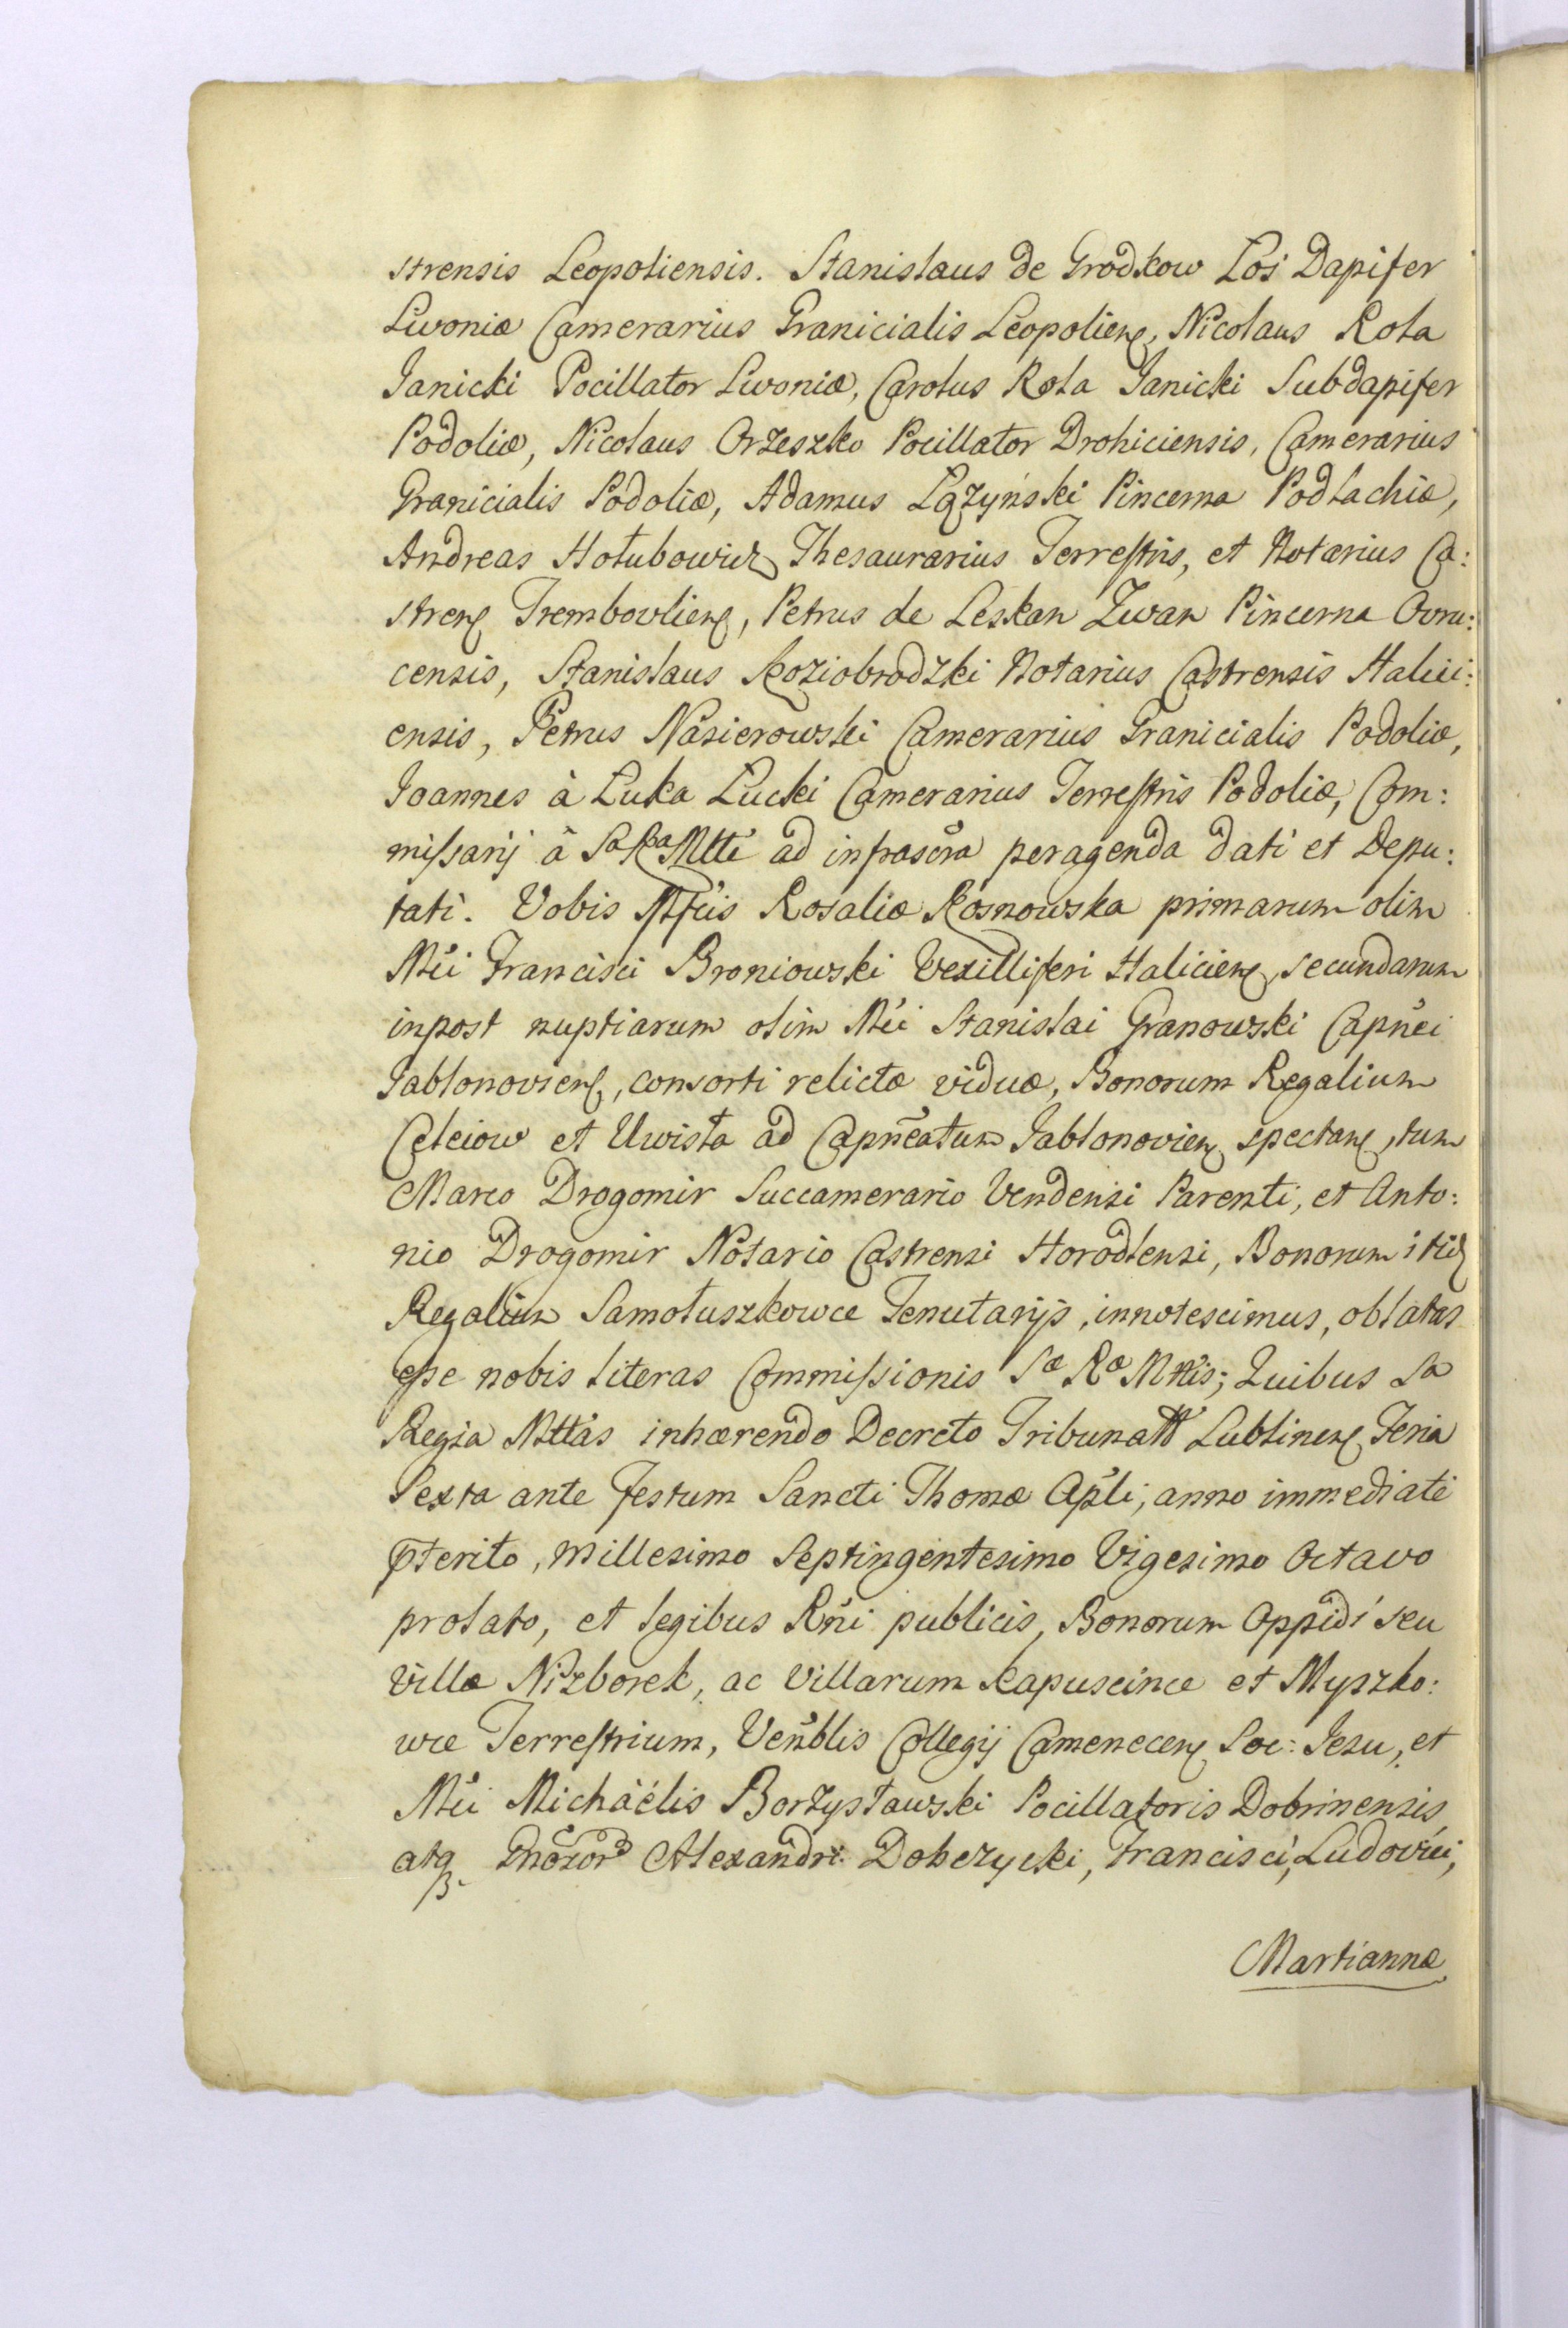 strensis Leopoliensis. Stanislaus de Grodkow Łoś Dapifer
Livoniæ Camerarius Granicialis Leopolien, Nicolaus Rola
Janicki Pocillator Livoniæ, Carolus Rola Janicki Subdapifer
Podoliæ, Nicolaus Orzeszko Pocillator Drohiciensis, Camerarius
Granicialis Podoliæ, Adamus Łązyński Pincerna Podlachiæ,
Andreas Hołubowicz Thesaurarius Terrestris, et Notarius Ca:
stren Trembovlien, Petrus de Leskan Zwan Pincerna Ovru:
censis, Stanislaus Koziobrodzki Notarius Castrensis Halici:
ensis, Petrus Nasierowski Camerarius Granicialis Podoliæ,
Joannes à Łuka Łucki Camerarius Terrestris Podoliæ, Com:
missarij à Sa Ra Mtte ad infrascra peragenda dati et Depu:
tati. Vobis Mfcis Rosaliæ Kosnowska primarum olim
Mci Francisci Broniowski Vexilliferi Halicien, secundarum
inpost nuptiarum olim Mci Stanislai Granowski Capnei
Jablonovien, consorti relictæ viduæ, Bonorum Regalium
Celeiow et Uwisła ad Capneatum Jablonovien spectan, tum
Marco Drogomir Succamerario Vendensi Parenti, et Anto:
nio Drogomir Notario Castrensi Horodlensi, Bonorum itid
Regalium Samołuszkowce Tenutarijs, innotescimus, oblatas
esse nobis literas Commissionis Sæ Ræ Mttis; Quibus Sa
Regia Mttas inhærendo Decreto Tribunalis Lublinen, Feria
Sexta ante Festum Sancti Thomæ Apli, anno immediate
pterito, Millesimo Septingentesimo Vigesimo Octavo
prolato, et legibus Rni publicis, Bonorum Oppidi seu
Villæ Nizborek, ac Villarum Kapuscince et Myszko:
wce Terrestrium, Venblis Collegij Camenecen Soc: Jesu, et
Mci Michäélis Borzysławski Pocillatoris Dobrinensis
atq Gnosor Alexandri Dobczycki, Francisci, Ludovici,
Martiannæ